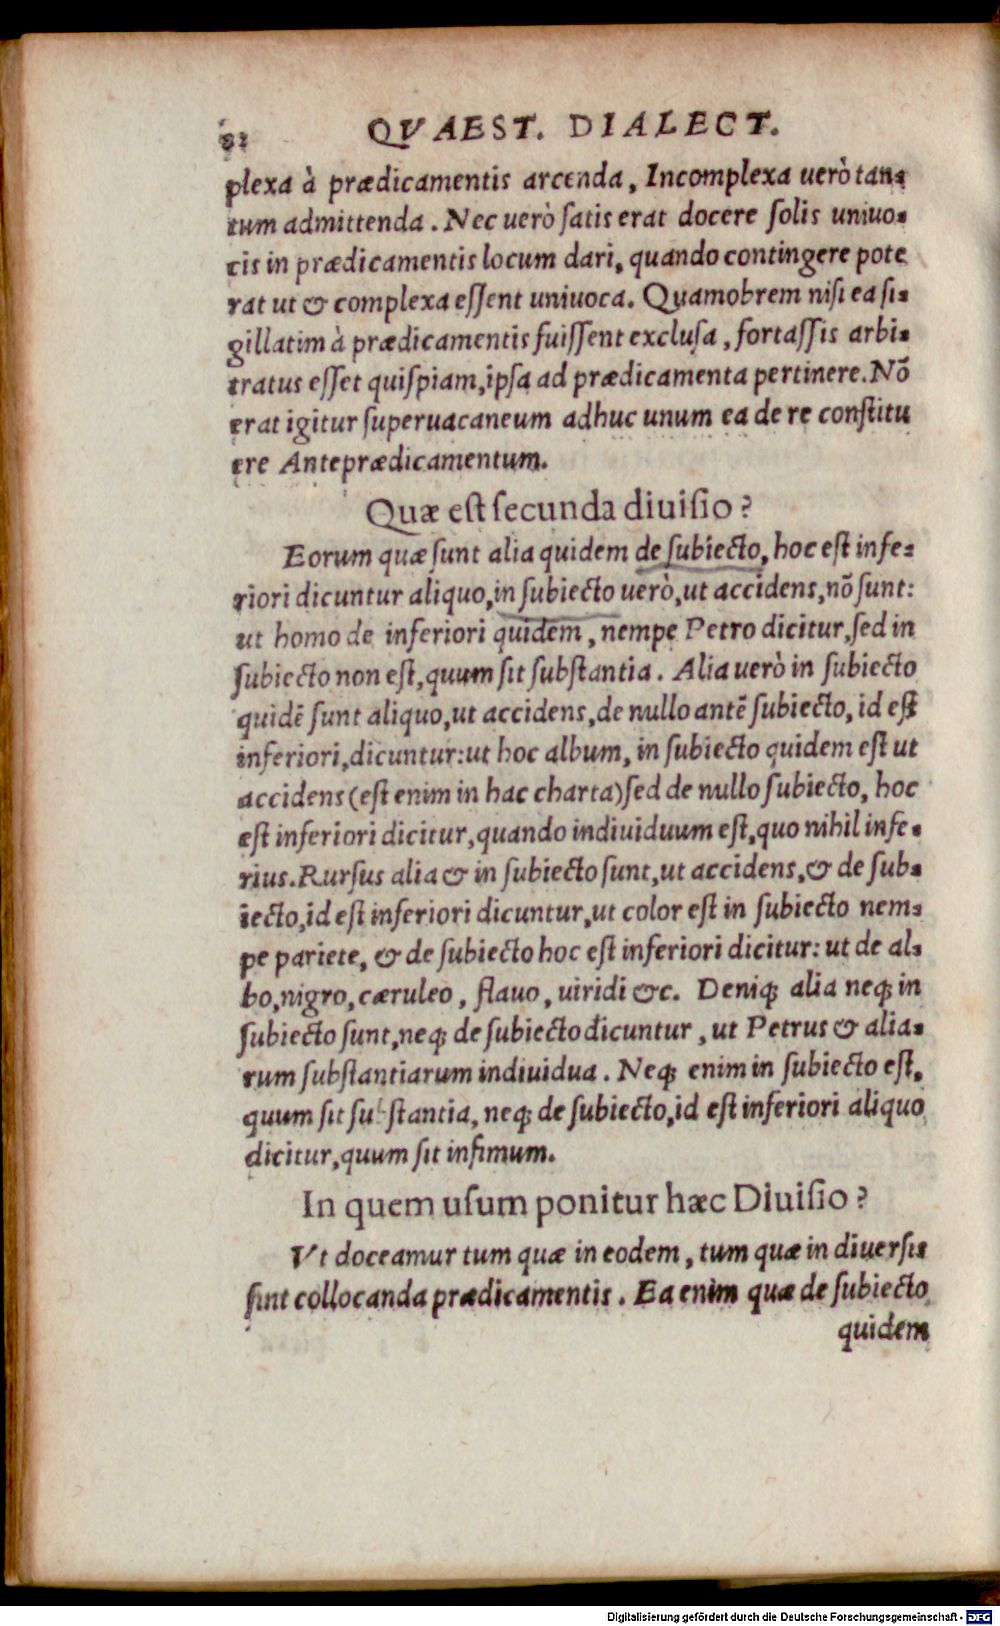 82 QVAEST. DIALECT.
plexa à prædicamentis arcenda, Incomplexa uerò tan-
tum admittenda. Nec uerò ſatis erat docere ſolis uniuo-
cis in prædicamentis locum dari, quando contingere pote
rat ut & complexa eſſent uniuoca. Quamobrem niſi ea ſi-
gillatim à prædicamentis fuiſſent excluſa, fortaſſis arbi-
tratus eſſet quiſpiam, ipſa ad prædicamenta pertinere. Nõ
erat igitur ſuperuacaneum adhuc unum ea de re conſtitu
ere Anteprædicamentum.
Quæ eſt ſecunda diuiſio?
Eorum quæ ſunt alia quidem de ſubiecto, hoc eſt infe-
riori dicuntur aliquo, in ſubiecto uerò, ut accidens, nõ ſunt:
ut homo de inferiori quidem, nempe Petro dicitur, ſed in
ſubiecto non eſt, quum ſit ſubſtantia. Alia uerò in ſubiecto
quidẽ ſunt aliquo, ut accidens, de nullo antẽ ſubiecto, id eſt
inferiori, dicuntur: ut hoc album, in ſubiecto quidem eſt ut
accidens (eſt enim in hac charta) ſed de nullo ſubiecto, hoc
eſt inferiori dicitur, quando indiuiduum eſt, quo nihil infe-
rius. Rurſus alia & in ſubiecto ſunt, ut accidens, & de ſub-
iecto, id eſt inferiori dicuntur, ut color eſt in ſubiecto nem-
pe pariete, & de ſubiecto hoc eſt inferiori dicitur: ut de al-
bo, nigro, cæruleo, flauo, uiridi &c. Deniqꝫ alia neqꝫ in
ſubiecto ſunt, neqꝫ de ſubiecto dicuntur, ut Petrus & alia-
rum ſubſtantiarum indiuidua. Neqꝫ enim in ſubiecto eſt,
quum ſit ſubſtantia, neqꝫ de ſubiecto, id eſt inferiori aliquo
dicitur, quum ſit infimum.
In quem uſum ponitur hæc Diuiſio?
Vt doceamur tum quæ in eodem, tum quæ in diuerſis
ſint collocanda prædicamentis. Ea enim quæ de ſubiecto
quidem
Digitalisierung gefördert durch die Deutsche Forschungsgemeinschaft - DFG